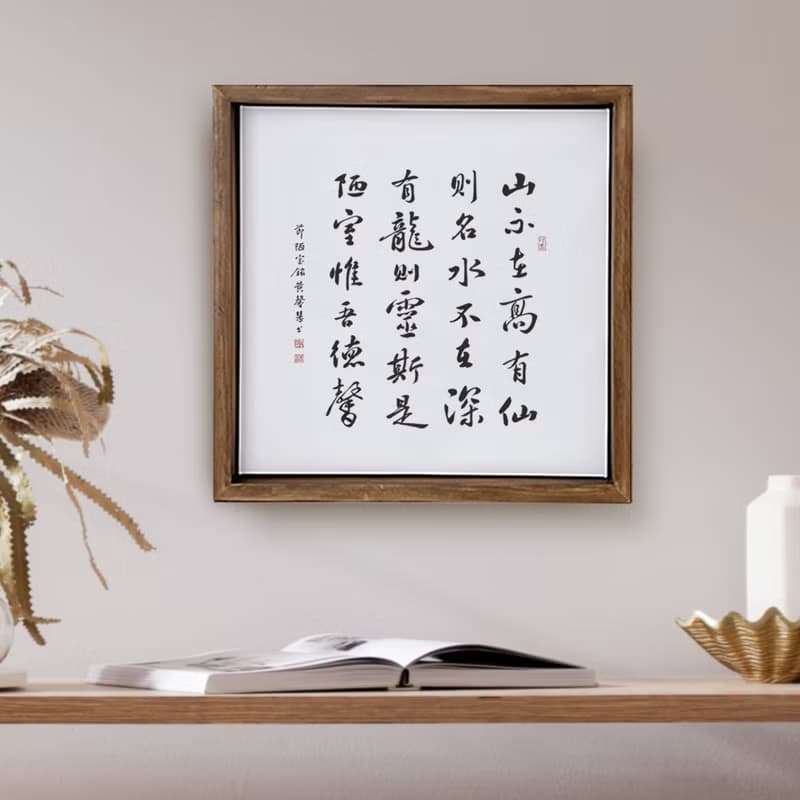 山不在高有仙
则名水不在深
有龍则靈斯是
陋室惟吾德馨
节陋室銘黄馨书